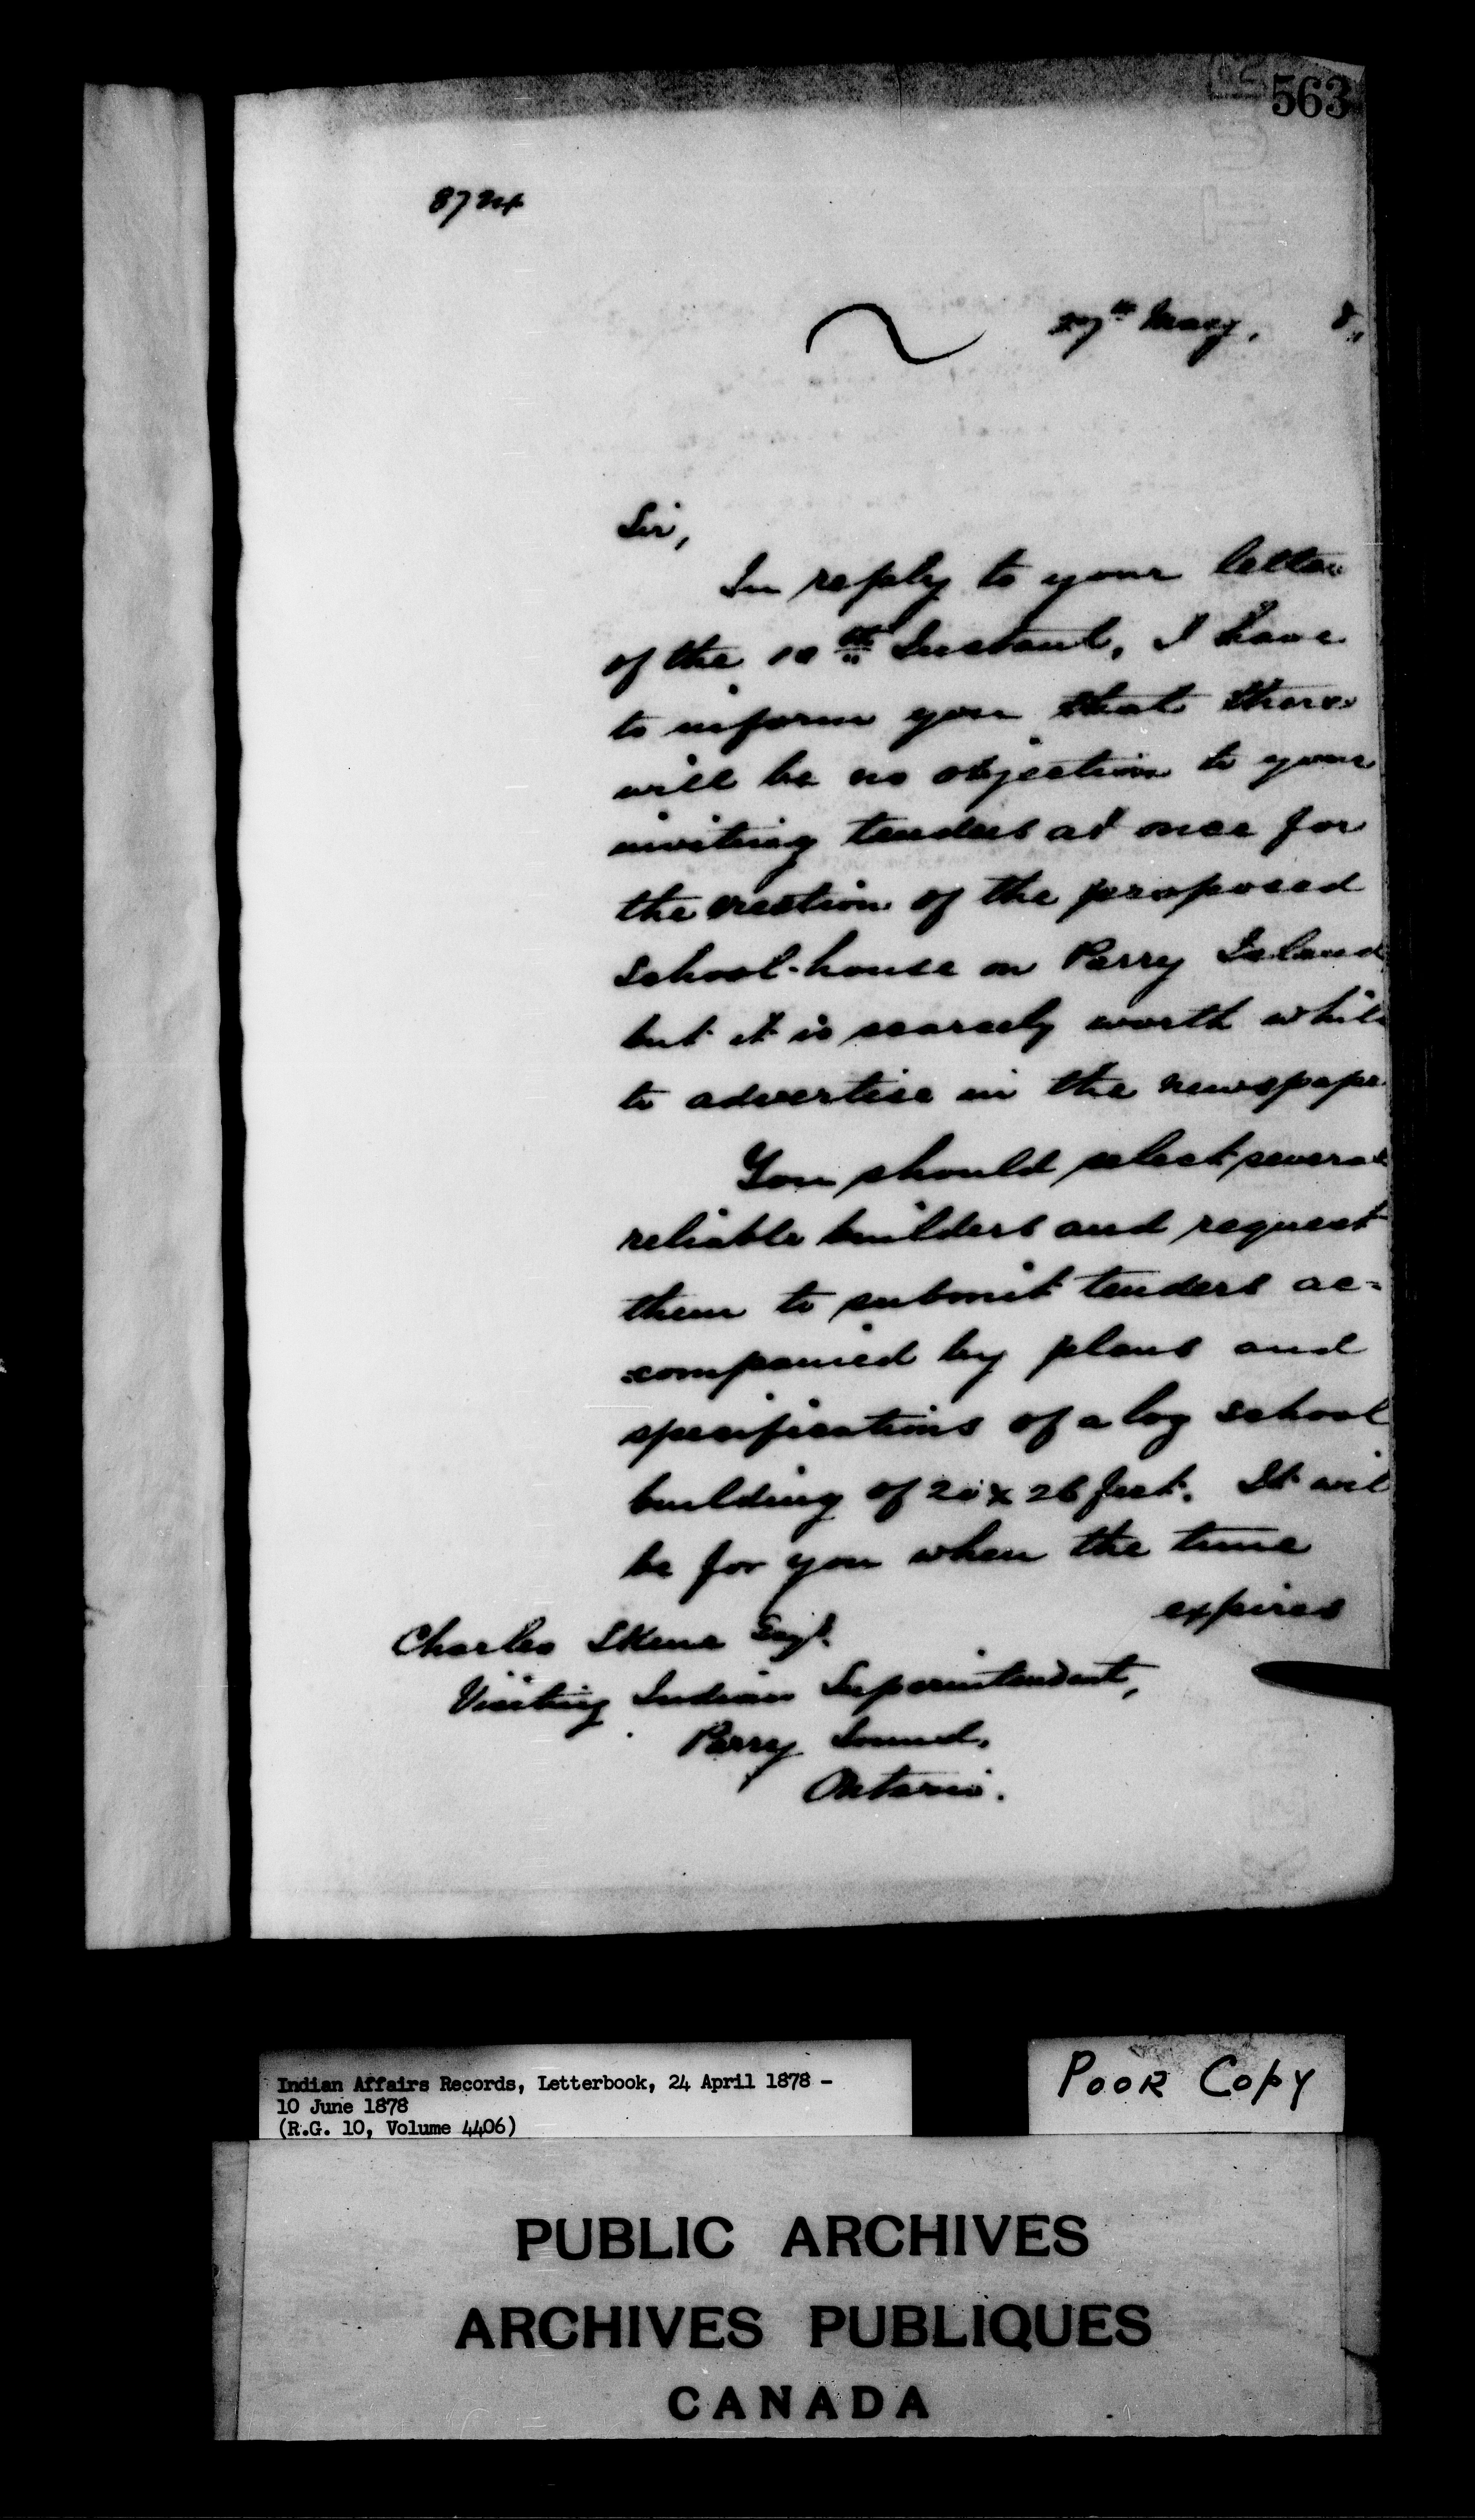 563
8724
27th May, 8,
Sir,
In reply to your letter
of the 10th Instant, I have
to inform you that there
will be no objection to your
inviting tenders at once for
the erection of the proposed
School-house on Parry Island
but it is scarcely worth while
to advertise in the newspape
You should select several
reliable builders and request
them to submit tenders ac=
=companied by plans and
specifications of a log school
building of 20 x 26 feet. It wil
be for you when the time
expires
Charles Skene Esqr.
Visiting Indian Superintendent,
Parry Sound,
Ontario.
Indian Affairs Records, Letterbook, 24 April 1878 -
10 June 1878
(R.G. 10, Volume 4406)
POOR COPY
PUBLIC ARCHIVES
ARCHIVES PUBLIQUES
CANADA